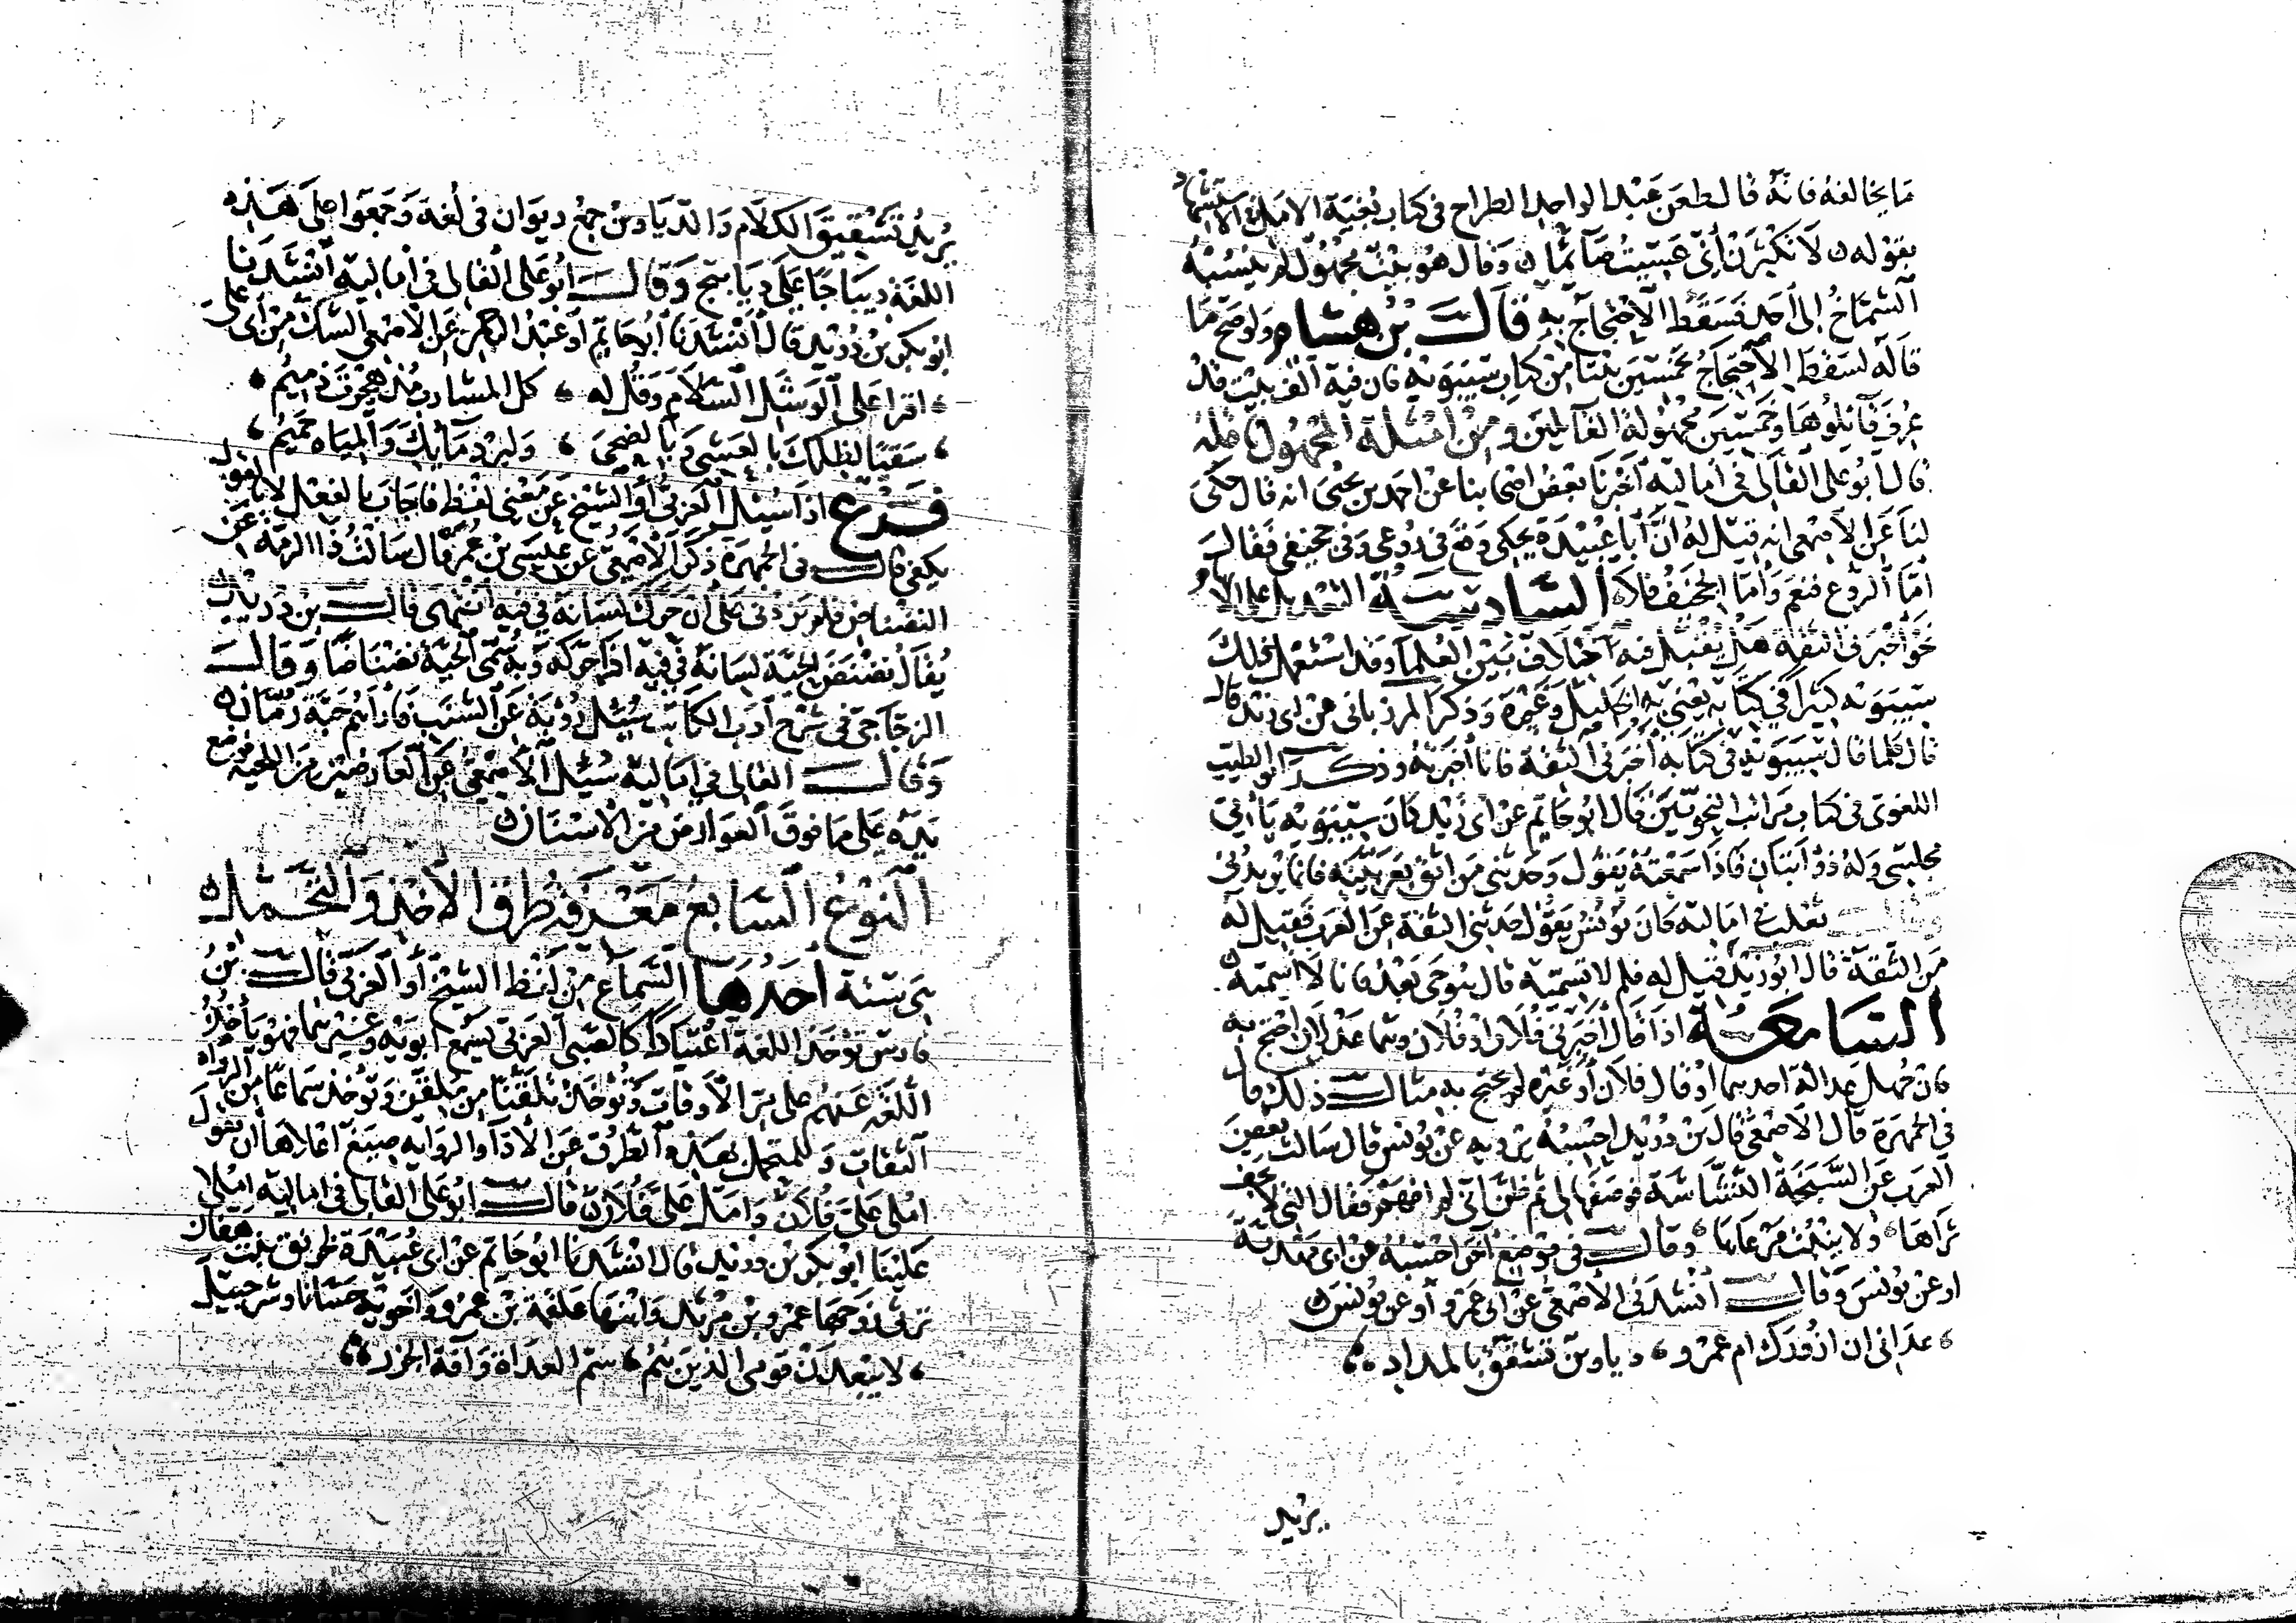 ما يخالفه فانه قال طعن عبد الواحد الطراح في كتاب بغية الامل في الاستشهاد
بقوله لا تكثرن اني عسيت صائما وقال هو بيت مجهول لم ينسبه
الشماخ الى احد فسقط الاحتجاج به قال بن هشام ولو صح ما
قاله لسقط الاحتجاج بخمسين بيتا من كتاب سيبويه فان فيه الف بيت قد
عرف قائلوها وخمسين مجهولة القائلين ومن امثلة المجهول
قال ابو علي القالي في اماليه اخبرنا بعض اصحابنا عن احمد بن يحيى انه قال حكى
لنا عن الاصمعي انه قيل له ان ابا عبيدة يحكي وقع في روعي وفي جخيفي فقال
اما الروع فنعم واما الجخيف فلا السادسة التعديل على الابهام
نحو اخبرني الثقة هل يقبل فيه اختلاف بين العلماء وقد استعمل ذلك
سيبويه كثيرا في كتابه يعني به الخليل وغيره وذكر المرزباني عن ابي زيد قال
قال كلما قال سيبويه في كتابه اخبرني الثقة فانا اخبرته وذكر ابو الطيب
اللغوي في كتاب مراتب النحويين قال ابو حاتم عن ابي زيد كان سيبويه ياتي
مجلسي وله ذؤابتان فاذا سمعته يقول وحدثني من اثق بعربيته فانما يريدني
وقال ثعلب في اماليه كان يونس يقول حدثني الثقة عن العرب فقيل له
من الثقة قال ابو زيد قيل له فلم لا تسميه قال هو حي بعد فانا لا اسميه
السابعة اذا قال اخبرني فلان او فلان وهما عدلان احتج به
فان جهل عدالة احدهما او قال فلان او غيره لم يحتج به مثال ذلك قال
في الجمهرة قال الاصمعي قال بن دريد احسبه يرويه عن يونس قال سالت بعض
العرب عن السبخة النشاشة فوصفها لي ثم ظن اني لم افهم فقال التي لا يجف
ثراها ولا ينبت مرعاها وقال في موضع اخر احسبه عن ابي مهدية
او عن يونس وقال انشدني الاصمعي عن ابي عمرو او عن يونس
عداني ان ازورك ام عمرو دياوين تشقق بالمداد
يريد
يريد تشقيق الكلام والدياوين جمع ديوان في لغة وجمعوا على هذه
اللغة ديباجا على ديابيج وقال ابو علي القالي في اماليه انشدنا
ابو بكر بن دريد قال انشدنا ابو حاتم او عبد الرحمن عن الاصمعي الشك من ابي علي
اقرا على الوشل السلام وقل له كل المشارب مذ هجرت ذميم
سقيا لظلك بالعشي وبالضحى ولبرد مائك والمياه حميم
فرع اذا سئل العربي او الشيخ عن معنى لفظ فاجاب بالفعل لا بالقول
يكفي قال في الجمهرة ذكر الاصمعي عن عيسى بن عمر قال سالت ذا الرمة عن
النضناض فلم يزدني على ان حرك لسانه في فيه انتهى قال بن دريد
يقال نضنض الحية لسانه في فيه اذا حركه وبه سمي الحية نضناضا وقال
الزجاجي في شرح ادب الكاتب سئل رؤبة عن الشنب فاراهم حبة رمان
وقال القالي في اماليه سئل الاصمعي عن العارضين من اللحية فوضع
يده على ما فوق العوارض من الاسنان
النوع السابع معرفة طرق الاخذ والتحمل
هي ستة احدها السماع من لفظ الشيخ او العربي قال بن
فارس تؤخذ اللغة اعتيادا كالصبي العربي يسمع ابويه وغيرهما فهو ياخذ
اللغة عنهم على مر الاوقات وتؤخذ تلقنا من ملقن وتؤخذ سماعا من الرواة
الثقات وللمتحمل بهذه الطرق عن الاداء والرواية صيغ اعلاها ان يقول
املى علي فلان وامل علي فلان قال ابو علي القالي في اماليه املى
علينا ابو بكر بن دريد قال انشدنا ابو حاتم عن ابي عبيدة لخرنق بنت هفان
ترثي زوجها عمرو بن مرثد وابنها علقمة بن عمرو واخويه حسانا وشرحبيل
لا يبعدن قومي الذين هم سم العداة وافة الجزر